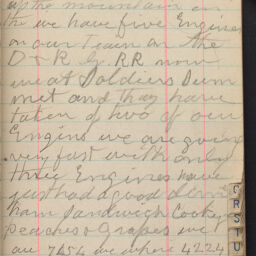 up the mountain on
th we have five Engines
on our Train on the
D + R G. RR now
we at Soldiers Sum
met and thay have
taken of two of our
Engins we are going
very fast with only
three Engines have
just had a good dinn
ham Sandwich Cookys
peaches & Grapes we
are 7454 we where 4224
C
R
S
T
U